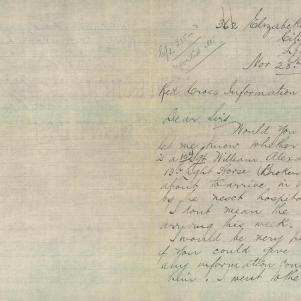 362 Elizabeth
Nov 28th
Red Cross Information
Dear Sirs
Would you
let me know whether
Sgt William Alexa
13th Light Horse (Broken
about to arrive in
by the next hospita
I dont mean the
arriving this week.
I would be very
if you could give
any information con
him. I went to the